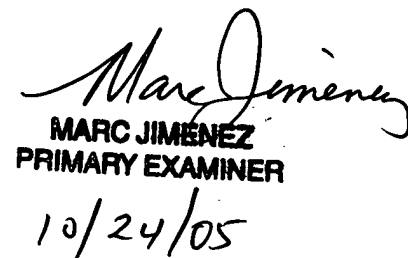 Marc Jimenez
MARC JIMENEZ
PRIMARY EXAMINER
10/24/05